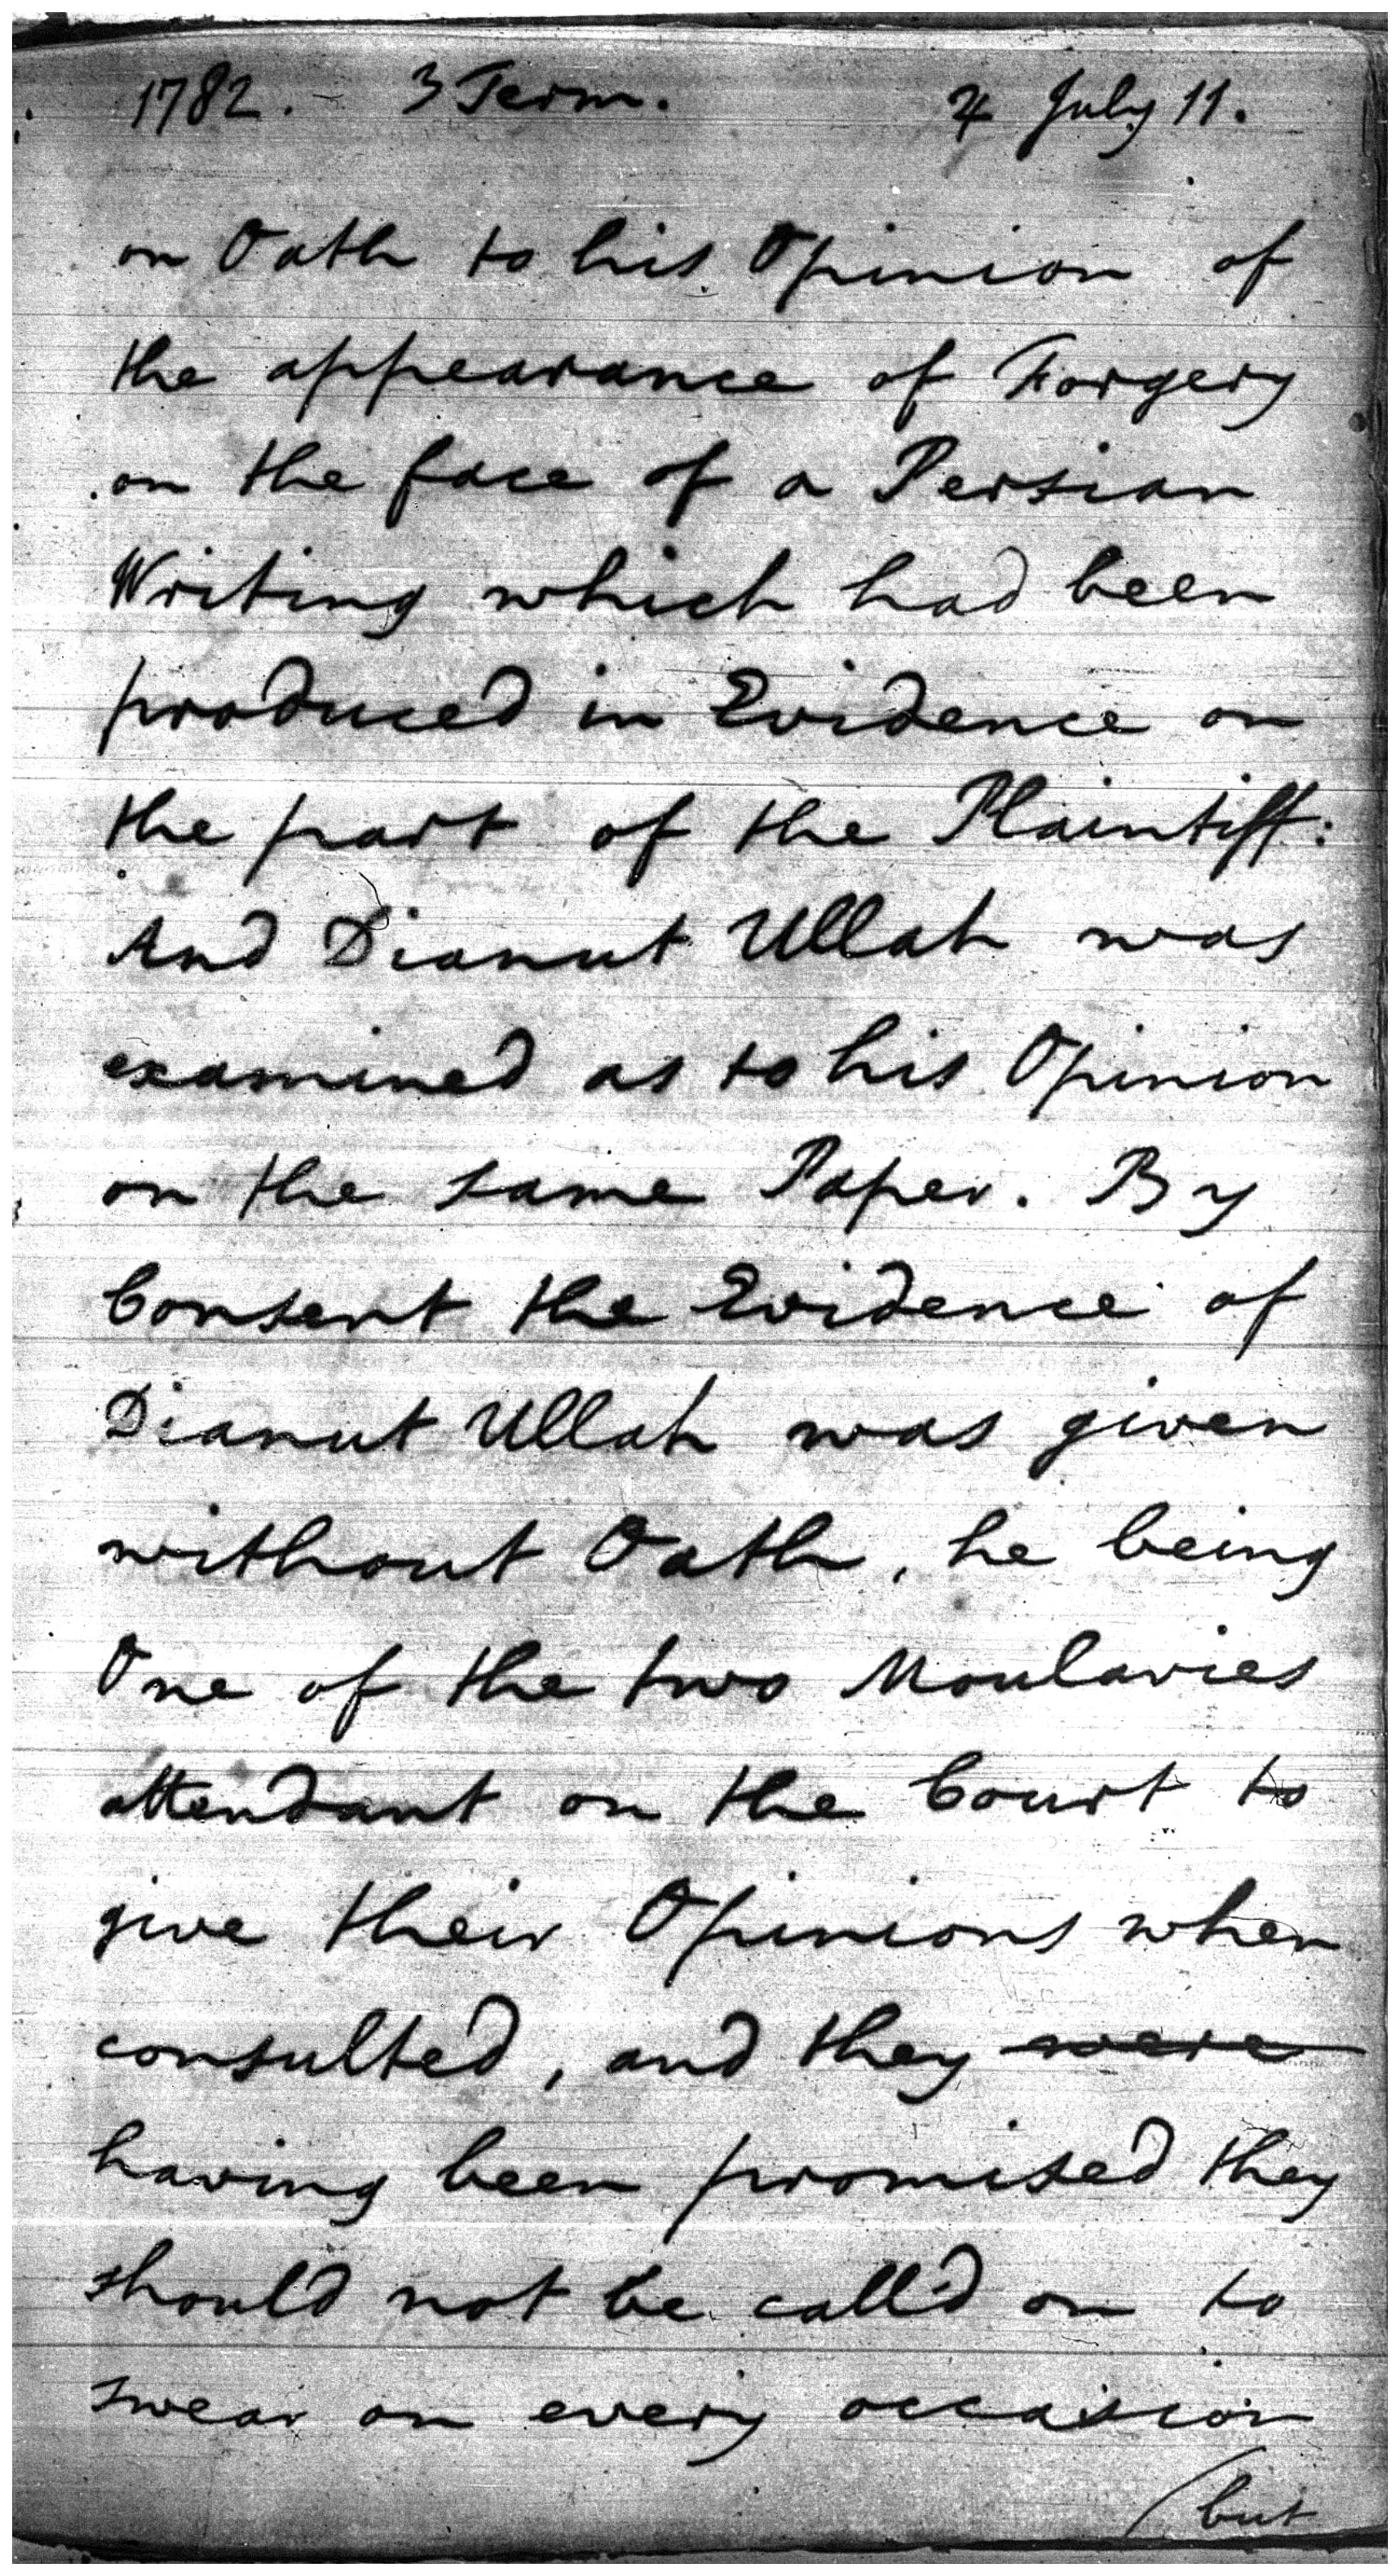 1782. - 3 Term. ♃ July 11.
on Oath to his Opinion of
the appearance of Forgery
on the face of a Persian
Writing which had been
produced in Evidence on
the part of the Plaintiff:
And Dianut Ullah was
examined as to his Opinion
on the same Paper. By
Consent the Evidence of
Dianut Ullah was given
without Oath, he being
One of the two Moulavies
attendant on the Court to
give their Opinions when
consulted, and they were
having been promised they
should not be call'd on to
swear on every occasion
(but